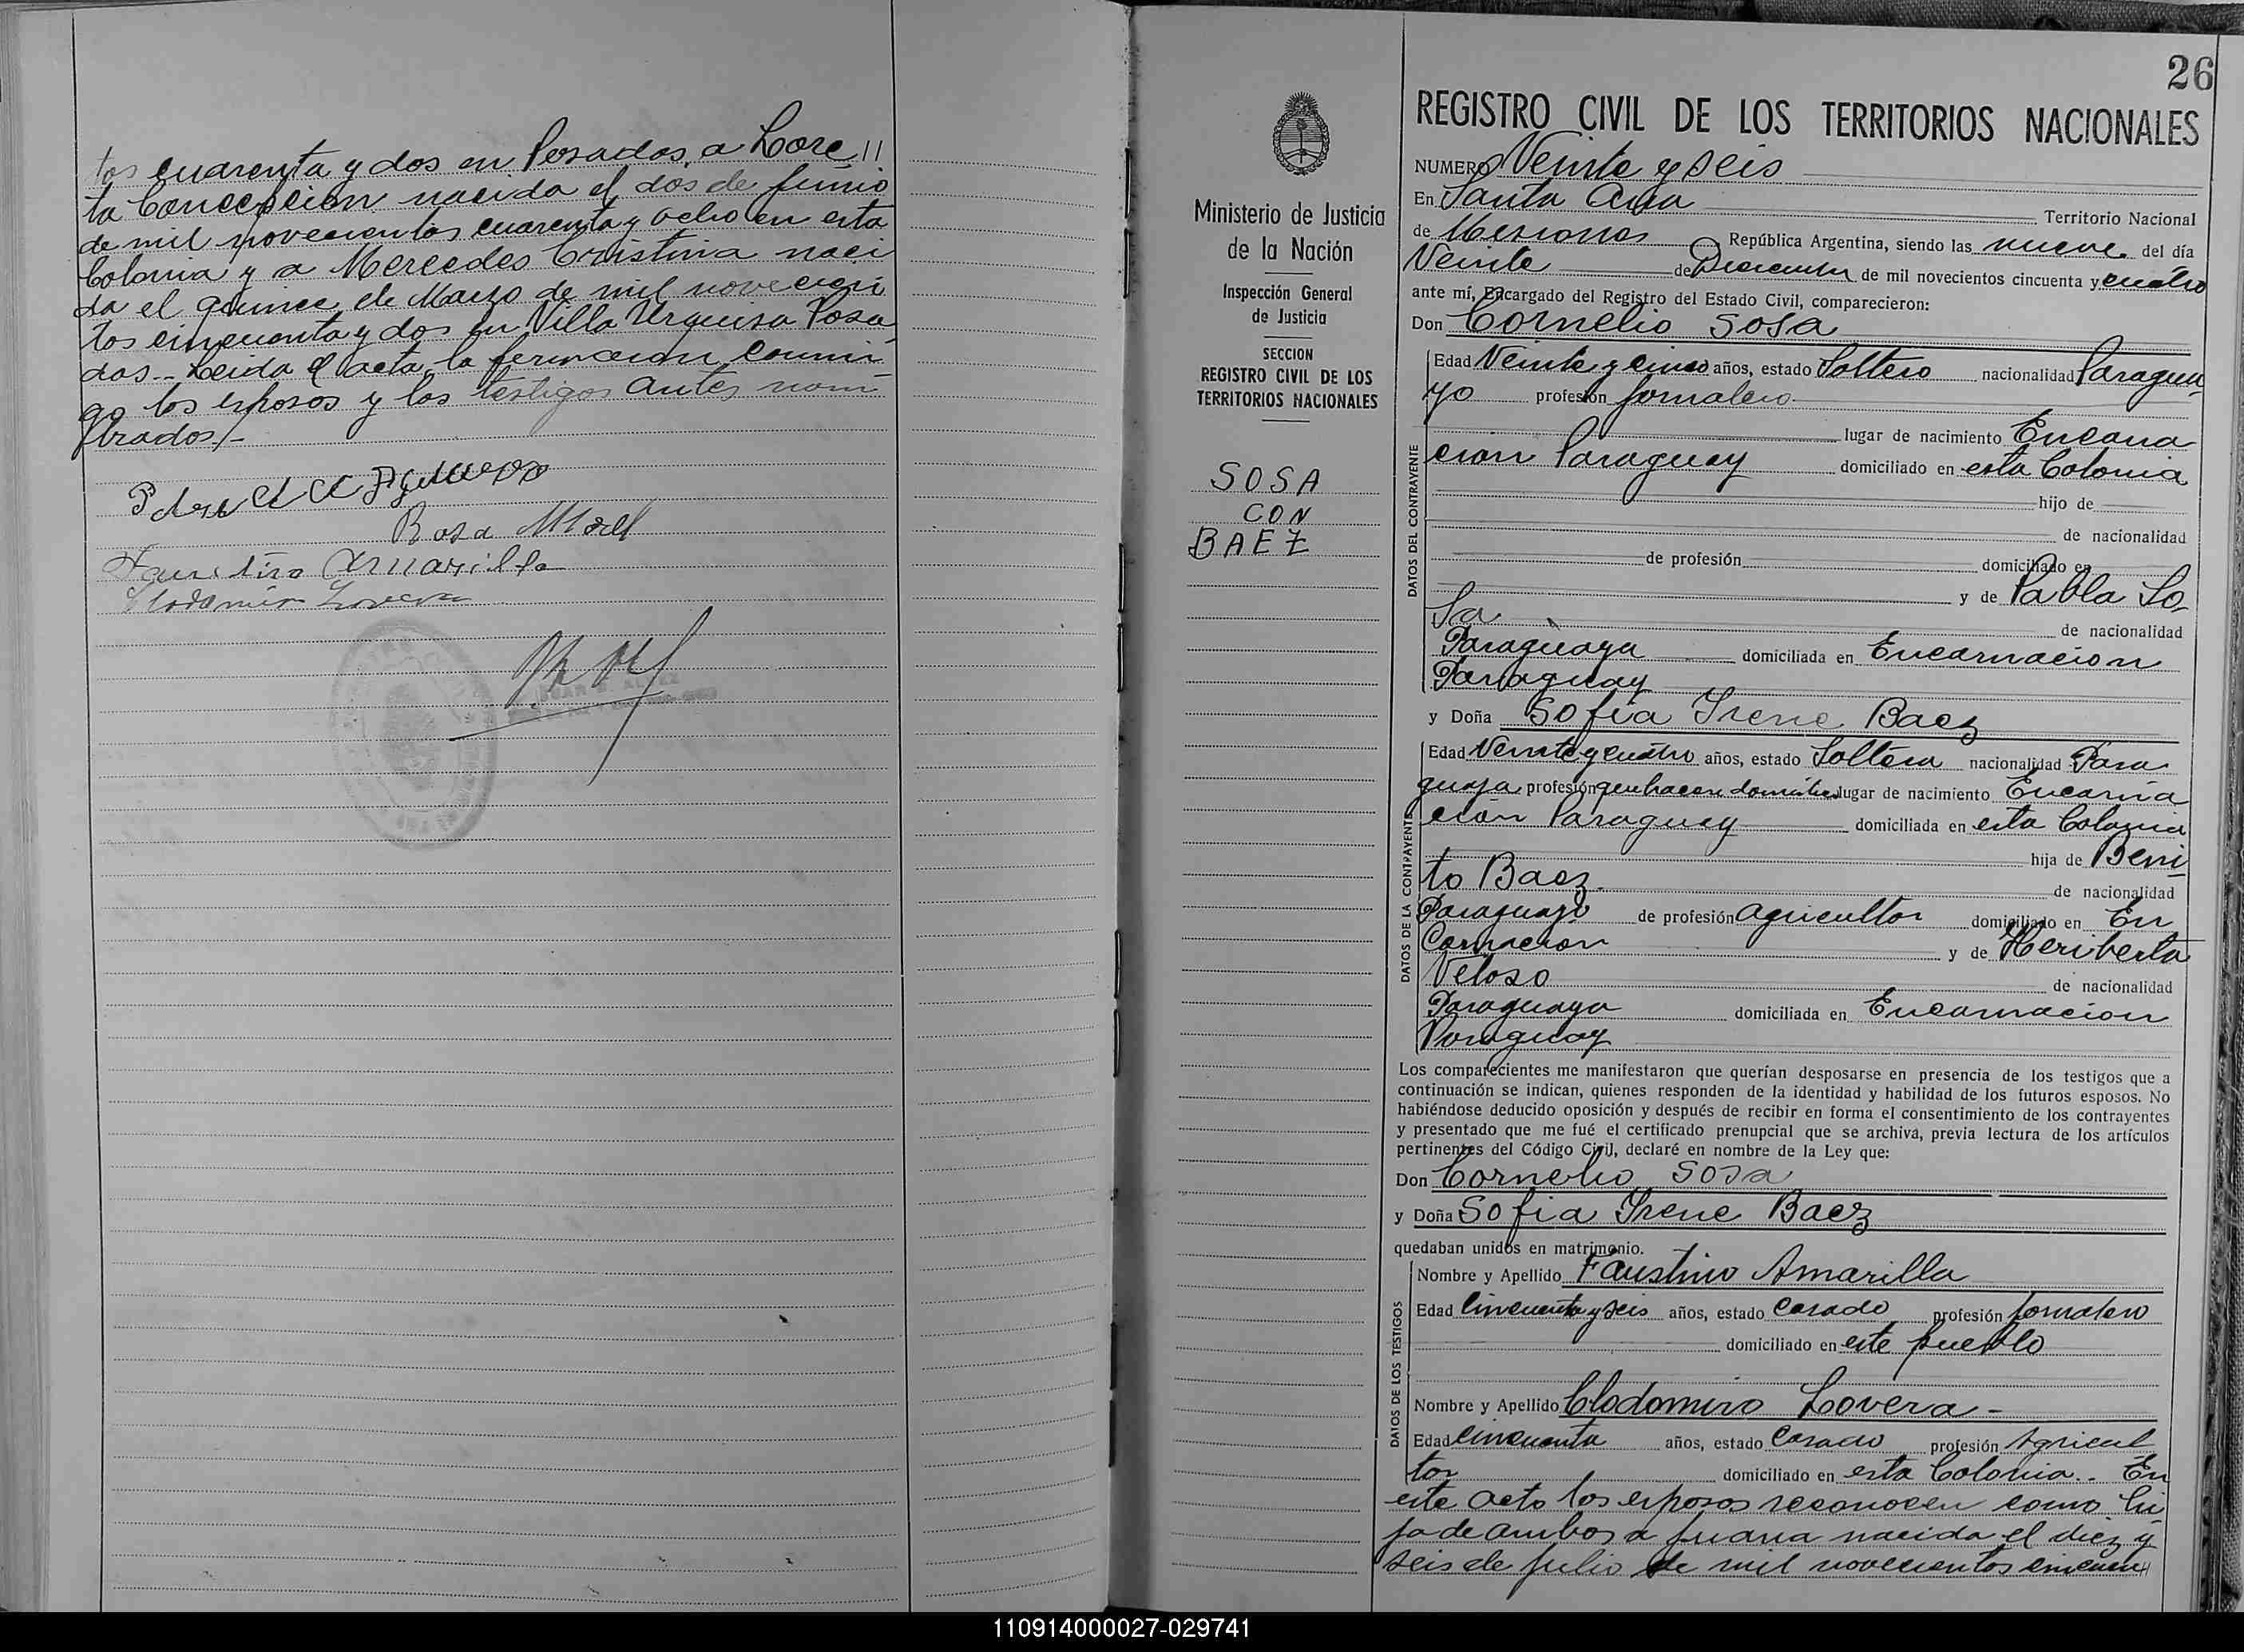 tos cuarenta y dos en Posadas, a Lore//
ta Concepcion nacida el dos de junio
de mil novecientos cuarenta y ocho en esta
Colonia y a Mercedes Cristina naci
da el quince de Marzo de mil novecien
tos cincuenta y dos en Villa Urquiza Posa
das.- Leida el acta, la firmaron conmi
go los esposos y los testigos antes nom
brados/-
Rosa Morel
Faustino Amarilla
Clodomiro Lovera
26
REGISTRO CIVIL DE LOS TERRITORIOS NACIONALES
NUMERO Veinte y seis
En Santa Ana Territorio Nacional
de Misiones República Argentina, siendo las nueve del día
Veinte de Diciembre de mil novecientos cincuenta y cuatro
ante mí, Encargado del Registro del Estado Civil, comparecieron:
Don Cornelio Sosa
Ministerio de Justicia
de la Nación
Inspección General
de Justicia
SECCION
REGISTRO CIVIL DE LOS
TERRITORIOS NACIONALES
SOSA
CON
BAEZ
DATOS DEL CONTRAYENTE
Edad Veinte y cinco años, estado Soltero nacionalidad Paragua
yo profesión jornalero
lugar de nacimiento Encarna
cion Paraguay domiciliado en esta Colonia
hijo de
de nacionalidad
de profesión domiciliado en
y de Pabla So
sa de nacionalidad
Paraguaya domiciliada en Encarnacion
Paraguay
y Doña Sofia Irene Baez
DATOS DE LA CONTRAYENTE
Edad Veinte y cuatro años, estado Soltera nacionalidad Para
guaya profesión quehaceres domésticos lugar de nacimiento Encarna
cion Paraguay domiciliada en esta Colonia
hija de Beni
to Baez de nacionalidad
Paraguayo de profesión agricultor domiciliado en En
carnacion y de Heriberta
Veloso de nacionalidad
Paraguaya domiciliada en Encarnacion
Paraguay
Los comparecientes me manifestaron que querían desposarse en presencia de los testigos que a
continuación se indican, quienes responden de la identidad y habilidad de los futuros esposos. No
habiéndose deducido oposición y después de recibir en forma el consentimiento de los contrayentes
y presentado que me fué el certificado prenupcial que se archiva, previa lectura de los artículos
pertinentes del Código Civil, declaré en nombre de la Ley que:
Don Cornelio Sosa
y Doña Sofia Irene Baez
quedaban unidos en matrimonio.
DATOS DE LOS TESTIGOS
Nombre y Apellido Faustino Amarilla
Edad Cincuenta y seis años, estado Casado profesión jornalero
domiciliado en este pueblo
Nombre y Apellido Clodomiro Lovera -
Edad Cincuenta años, estado Casado profesión Agricul
tor domiciliado en esta Colonia.- En
este acto los esposos reconocen como hi
ja de ambos a Juana nacida el diez y
seis de julio de mil novecientos cincuen//
110914000027-029741